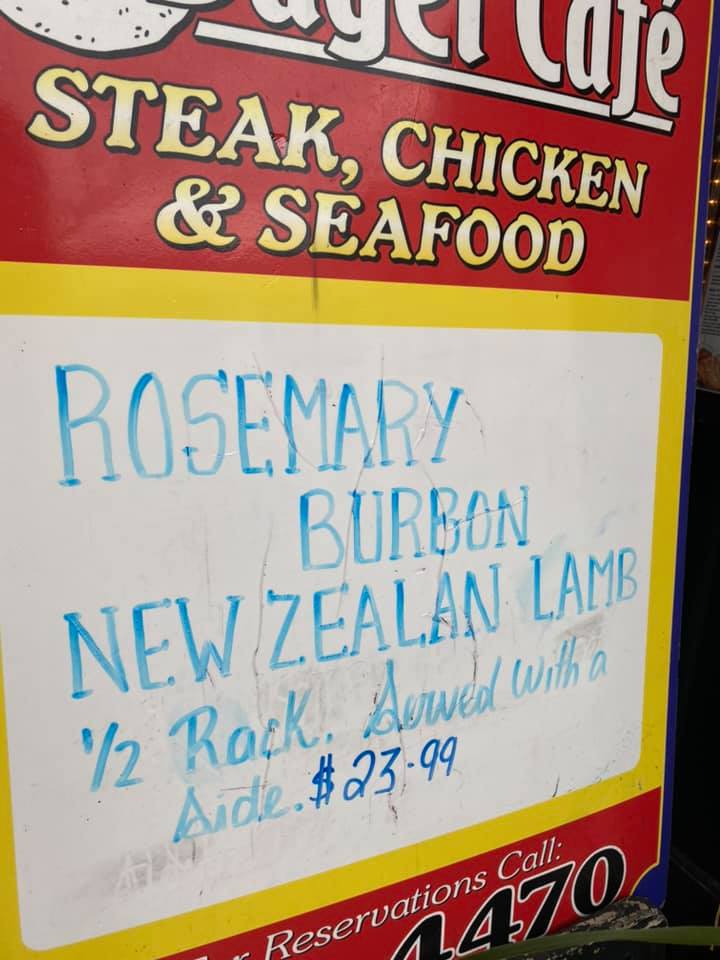 Café
STEAK, CHICKEN
& SEAFOOD
ROSEMARY
BURBON
NEW ZEALAN LAMB
1/2 Rack. Served With a
Side. $23.99
Reservations Call:
4470